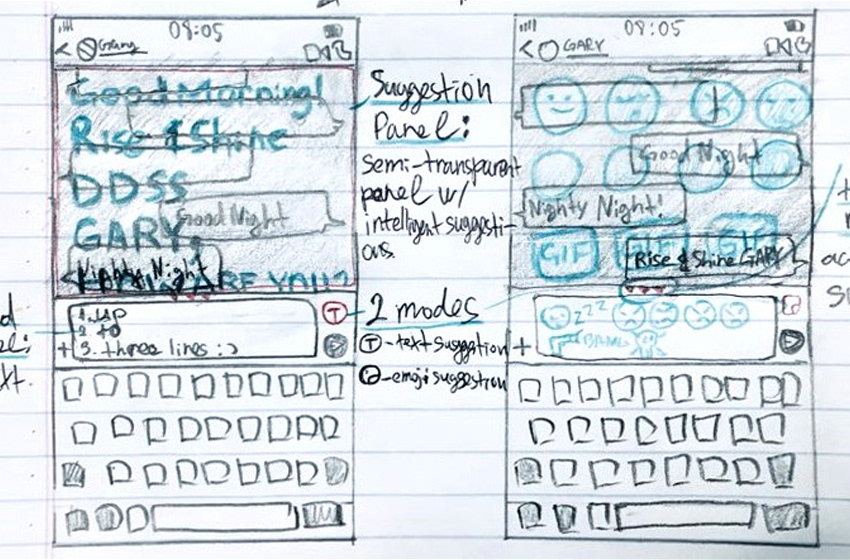 08:05
Good Morning!
Rise & Shine
DDSS
GARY,
Good Night
Nighty Night
ARE YOU?
2 to
3. three lines :)
T
Suggestion
Panel:
semi-transparent
panel w/
intelligent suggesti-
ons.
2 modes
T - text suggestion
- emoji suggestion
08:05
GARY
Good Night
Nighty Night!
GIF
GIF
GIF
Rise & Shine GARY
zzz